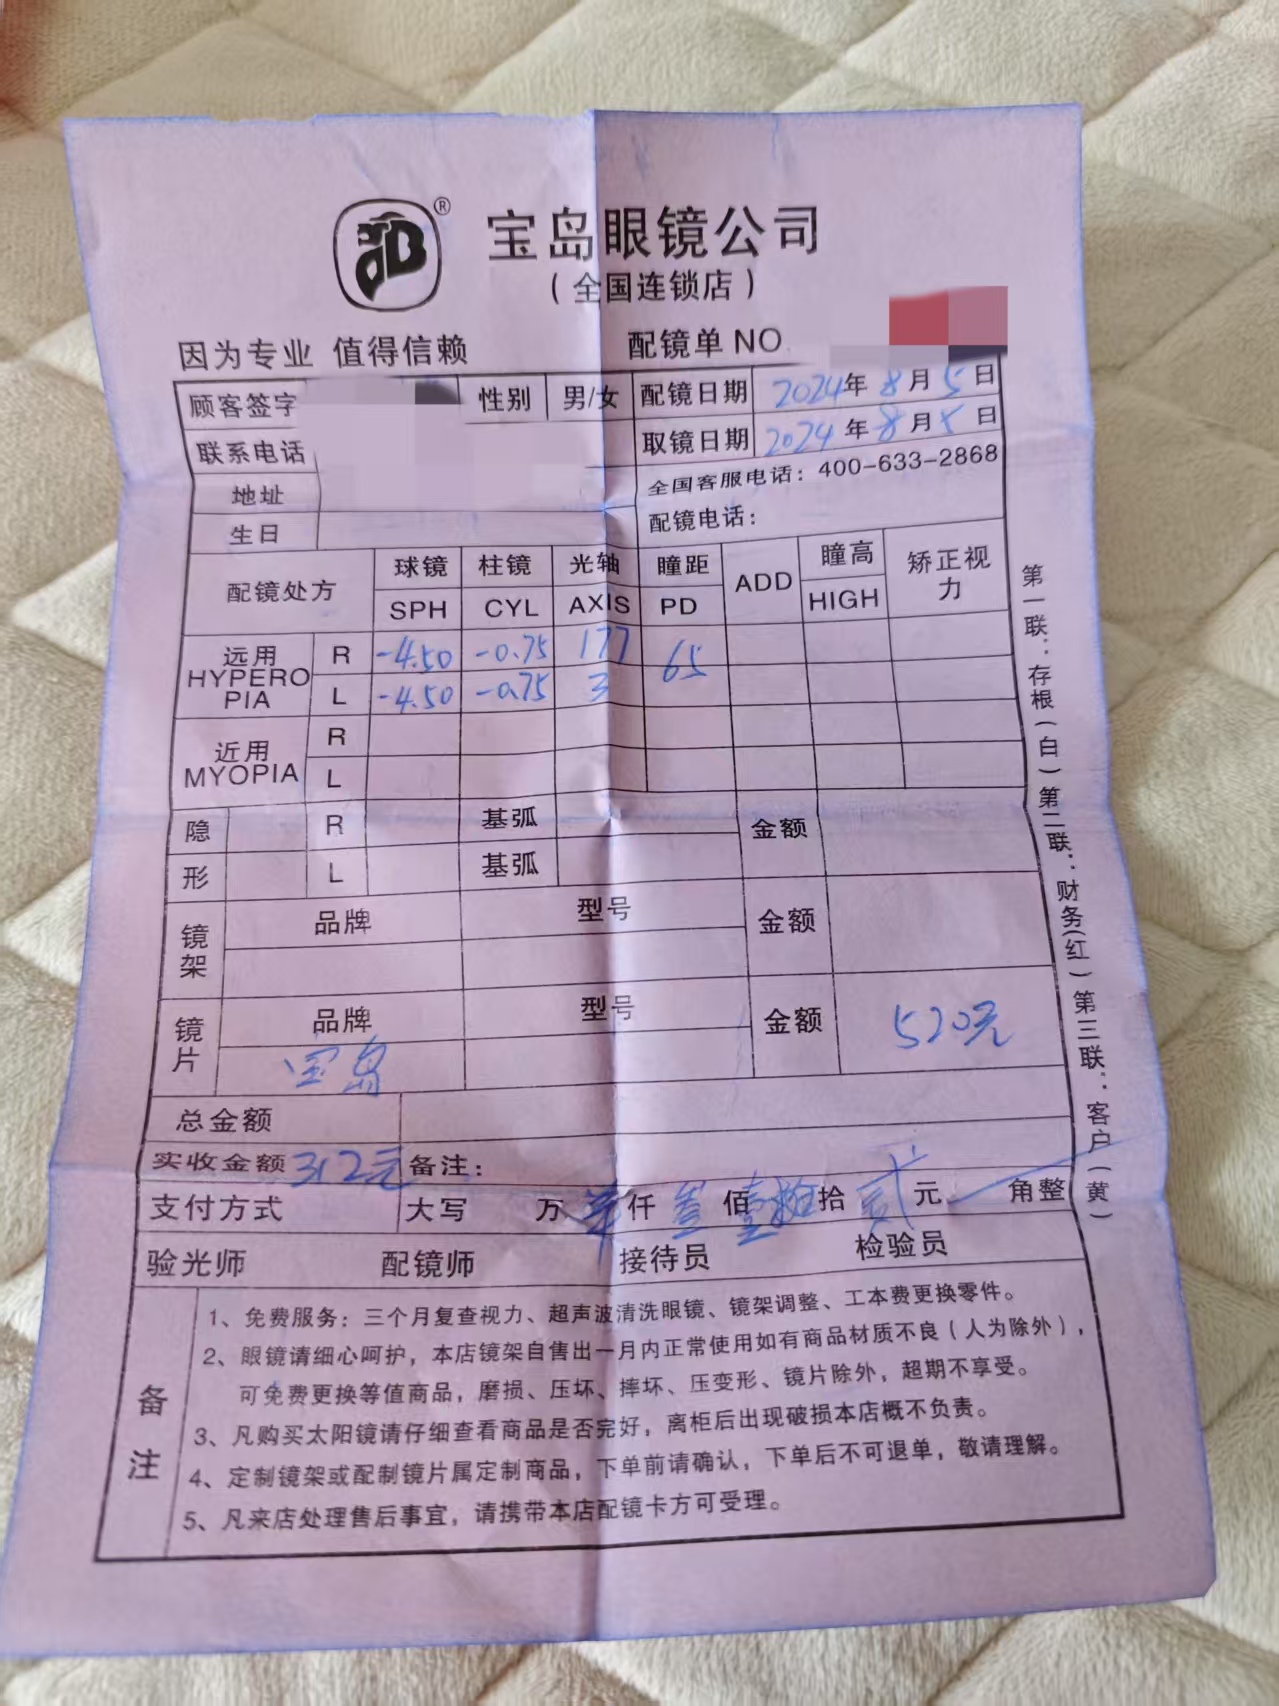 宝岛眼镜公司
（全国连锁店）
因为专业 值得信赖 配镜单 NO
顾客签字 性别 男/女 配镜日期 2024年 8月 5日
联系电话 取镜日期 2024年 8月 5日
地址 全国客服电话：400-633-2868
生日 配镜电话：
配镜处方 球镜 柱镜 光轴 瞳距 ADD 瞳高 矫正视力
SPH CYL AXIS PD HIGH
远用 HYPEROPIA R -4.50 -0.75 177 65
L -4.50 -0.75 3
近用 MYOPIA R
L
隐形 R 基弧 金额
L 基弧
镜架 品牌 型号 金额
镜片 品牌 型号 金额 520元
宝岛
总金额
实收金额 312元 备注：
支付方式 大写 万 仟 叁 佰 壹拾 拾 贰 元 角整
验光师 配镜师 接待员 检验员
备注
1、免费服务：三个月复查视力、超声波清洗眼镜、镜架调整、工本费更换零件。
2、眼镜请细心呵护，本店镜架自售出一月内正常使用如有商品材质不良（人为除外），
可免费更换等值商品，磨损、压坏、摔坏、压变形、镜片除外，超期不享受。
3、凡购买太阳镜请仔细查看商品是否完好，离柜后出现破损本店概不负责。
4、定制镜架或配制镜片属定制商品，下单前请确认，下单后不可退单，敬请理解。
5、凡来店处理售后事宜，请携带本店配镜卡方可受理。
第一联：存根（白）第二联：财务（红）第三联：客户（黄）